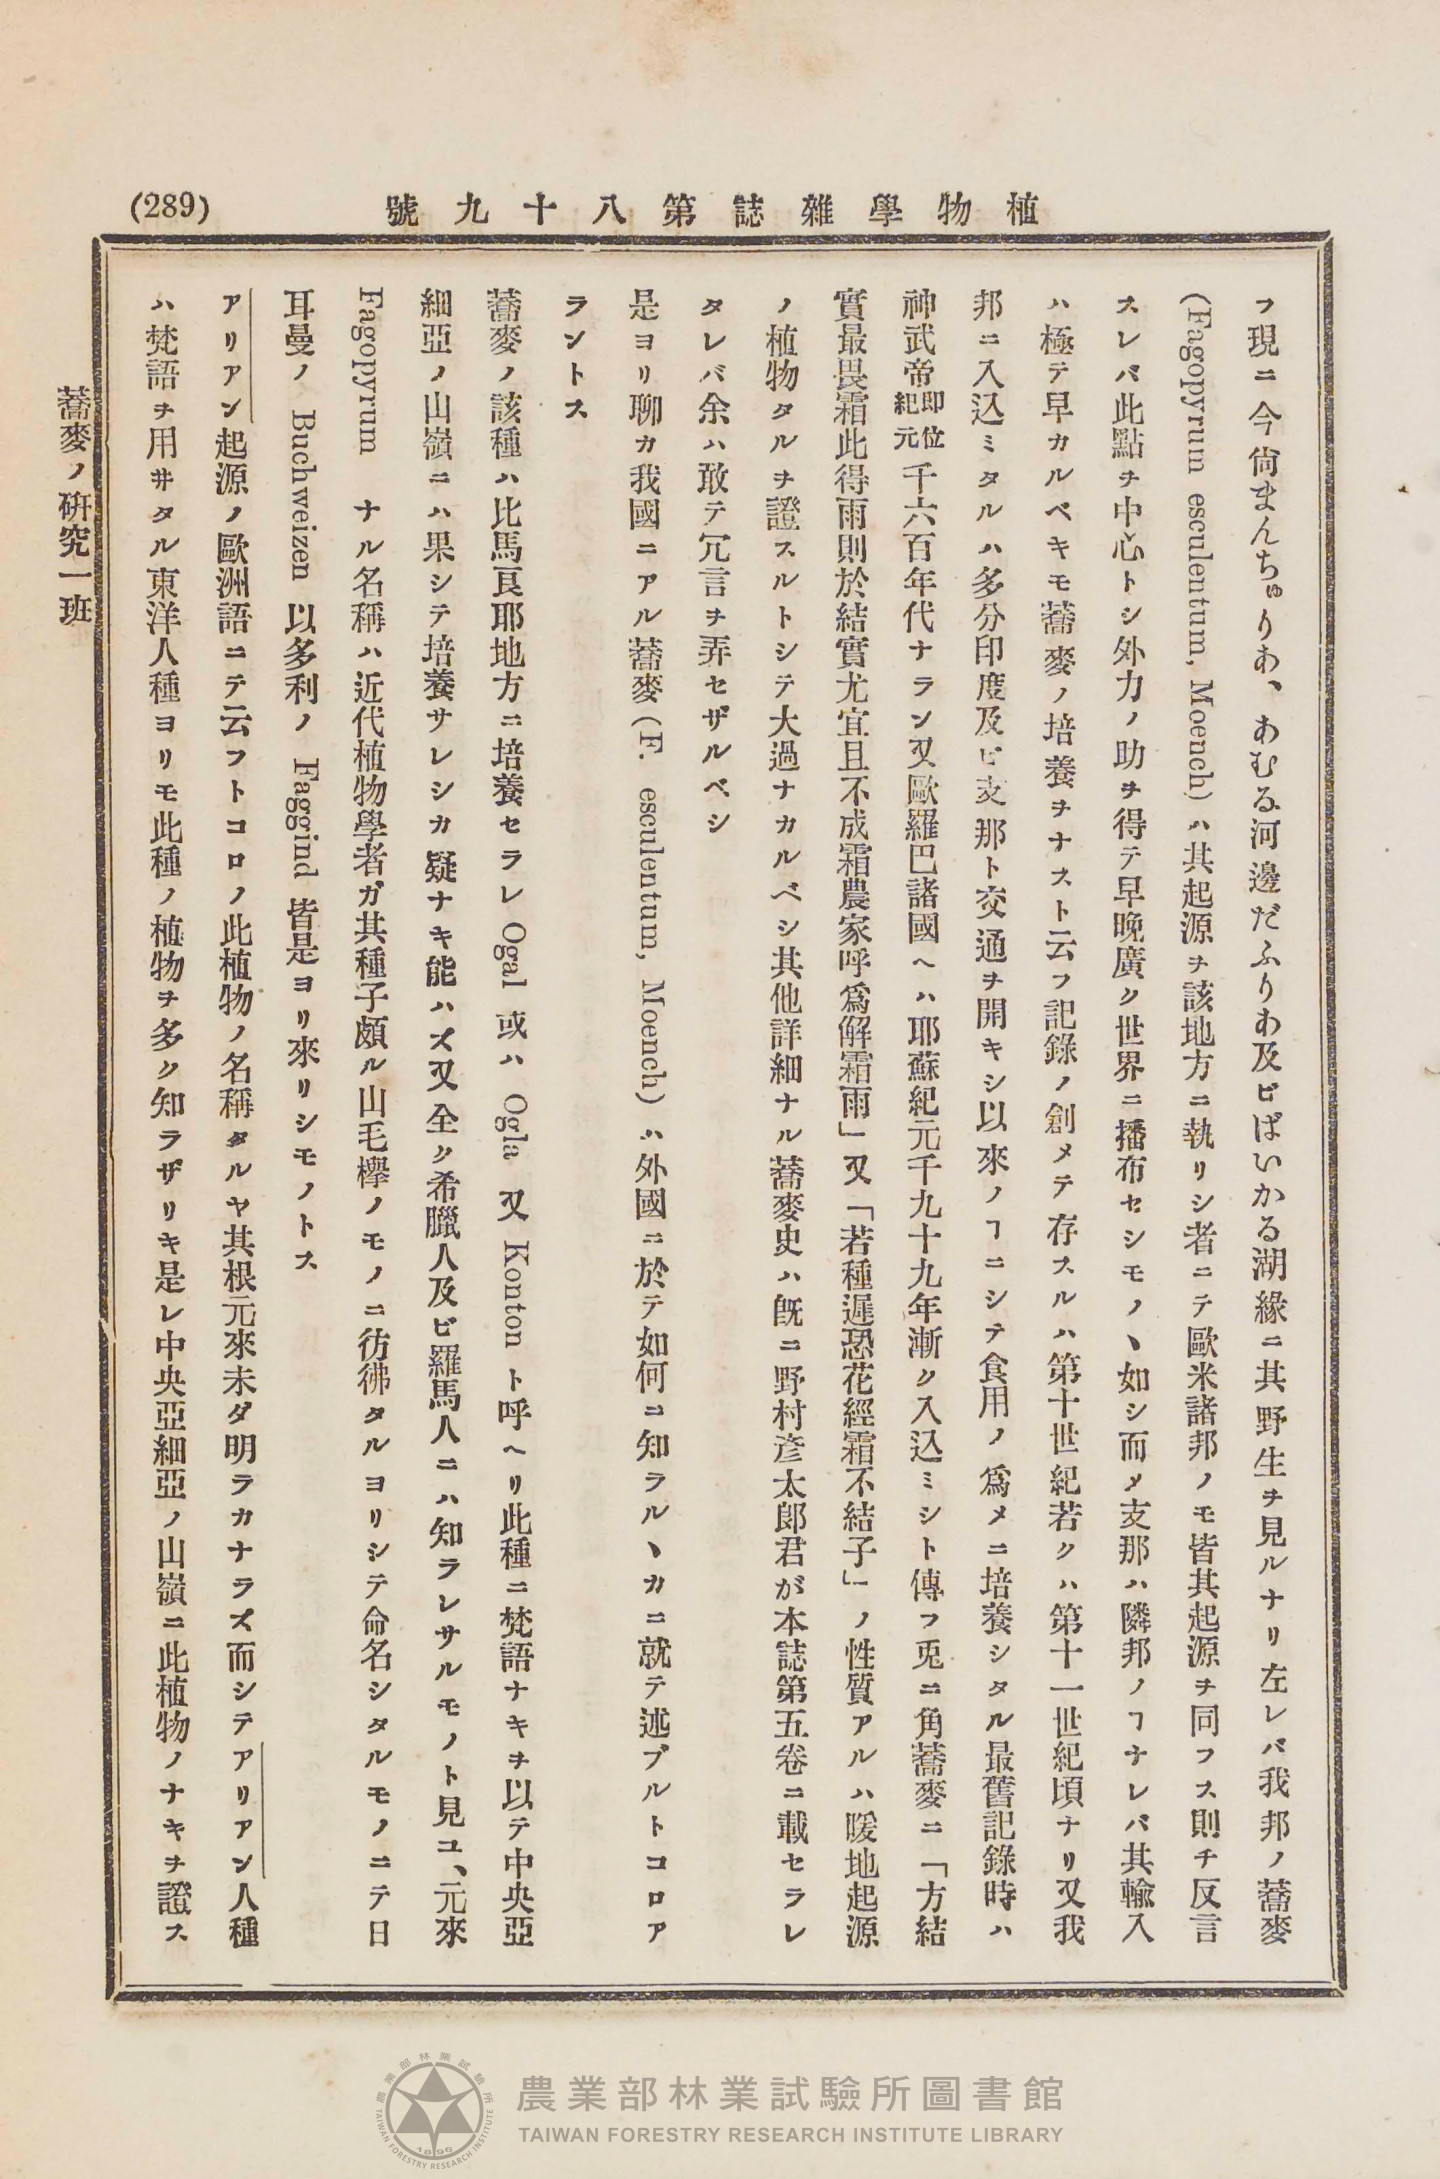 植物學雜誌第八十九號
(289)
フ現ニ今尙まんちゅりあ、あむる河邊だふりあ及ビばいかる湖緣ニ其野生ヲ見ルナリ左レバ我邦ノ蕎麥
(Fagopyrum esculentum, Moench)ハ其起源ヲ該地方ニ執リシ者ニテ歐米諸邦ノモ皆其起源ヲ同フス則チ反言
スレバ此點ヲ中心トシ外力ノ助ヲ得テ早晚廣ク世界ニ播布セシモノヽ如シ而メ支那ハ隣邦ノヿナレバ其輸入
ハ極テ早カルベキモ蕎麥ノ培養ヲナスト云フ記錄ノ創メテ存スルハ第十世紀若クハ第十一世紀頃ナリ又我
邦ニ入込ミタルハ多分印度及ビ支那ト交通ヲ開キシ以來ノヿニシテ食用ノ爲メニ培養シタル最舊記錄時ハ
神武帝卽位紀元千六百年代ナラン又歐羅巴諸國ヘハ耶蘇紀元千九十九年漸ク入込ミシト傳フ兎ニ角蕎麥ニ「方結
實最畏霜此得雨則於結實尤宜且不成霜農家呼爲解霜雨」又「若種遲恐花經霜不結子」ノ性質アルハ暖地起源
ノ植物タルヲ證スルトシテ大過ナカルベシ其他詳細ナル蕎麥史ハ旣ニ野村彥太郞君が本誌第五卷ニ載セラレ
タレバ余ハ敢テ冗言ヲ弄セザルベシ
是ヨリ聊カ我國ニアル蕎麥(F. esculentum, Moench)ハ外國ニ於テ如何ニ知ラルヽカニ就テ述ブルトコロア
ラントス
蕎麥ノ該種ハ比馬良耶地方ニ培養セラレ Ogal 或ハ Ogla 又 Konton ト呼ヘリ此種ニ梵語ナキヲ以テ中央亞
細亞ノ山嶺ニハ果シテ培養サレシカ疑ナキ能ハズ又全ク希臘人及ビ羅馬人ニハ知ラレサルモノト見ユ、元來
Fagopyrum ナル名稱ハ近代植物學者ガ其種子頗ル山毛欅ノモノニ彷彿タルヨリシテ命名シタルモノニテ日
耳曼ノ Buchweizen 以多利ノ Faggind 皆是ヨリ來リシモノトス
アリアン起源ノ歐洲語ニテ云フトコロノ此植物ノ名稱タルヤ其根元來未ダ明ラカナラズ而シテアリアン人種
ハ梵語ヲ用井タル東洋人種ヨリモ此種ノ植物ヲ多ク知ラザリキ是レ中央亞細亞ノ山嶺ニ此植物ノナキヲ證ス
蕎麥ノ硏究一班
農業部林業試驗所圖書館
TAIWAN FORESTRY RESEARCH INSTITUTE LIBRARY
農業部林業試驗所
TAIWAN FORESTRY RESEARCH INSTITUTE
1896